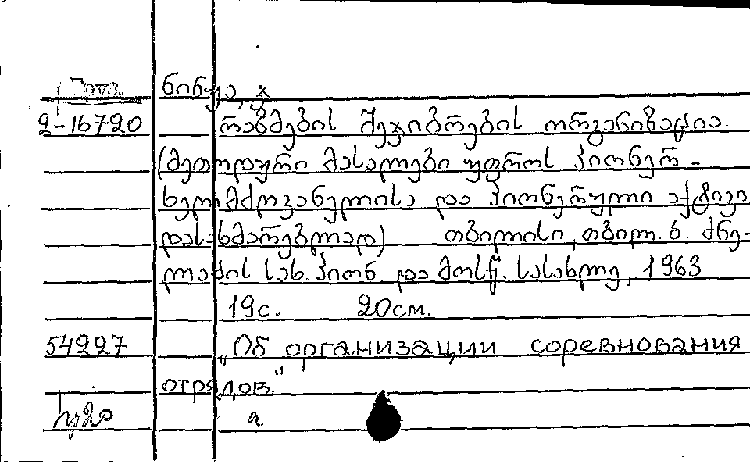 ნინუა, ჯ
2-16720 რაზმების შეჯიბრების ორგანიზაცია.
(მეთოდური მასალები უფროს პიონერ-
ხელმძღვანელისა და პიონერული აქტივი
დასახმარებლად) თბილისი, თბილ. ბ. ძნე-
ლაძის სახ. პიონ და მოსწ. სასახლე, 1963
19с. 20см.
54227 „Об организации соревнования
отрядов"